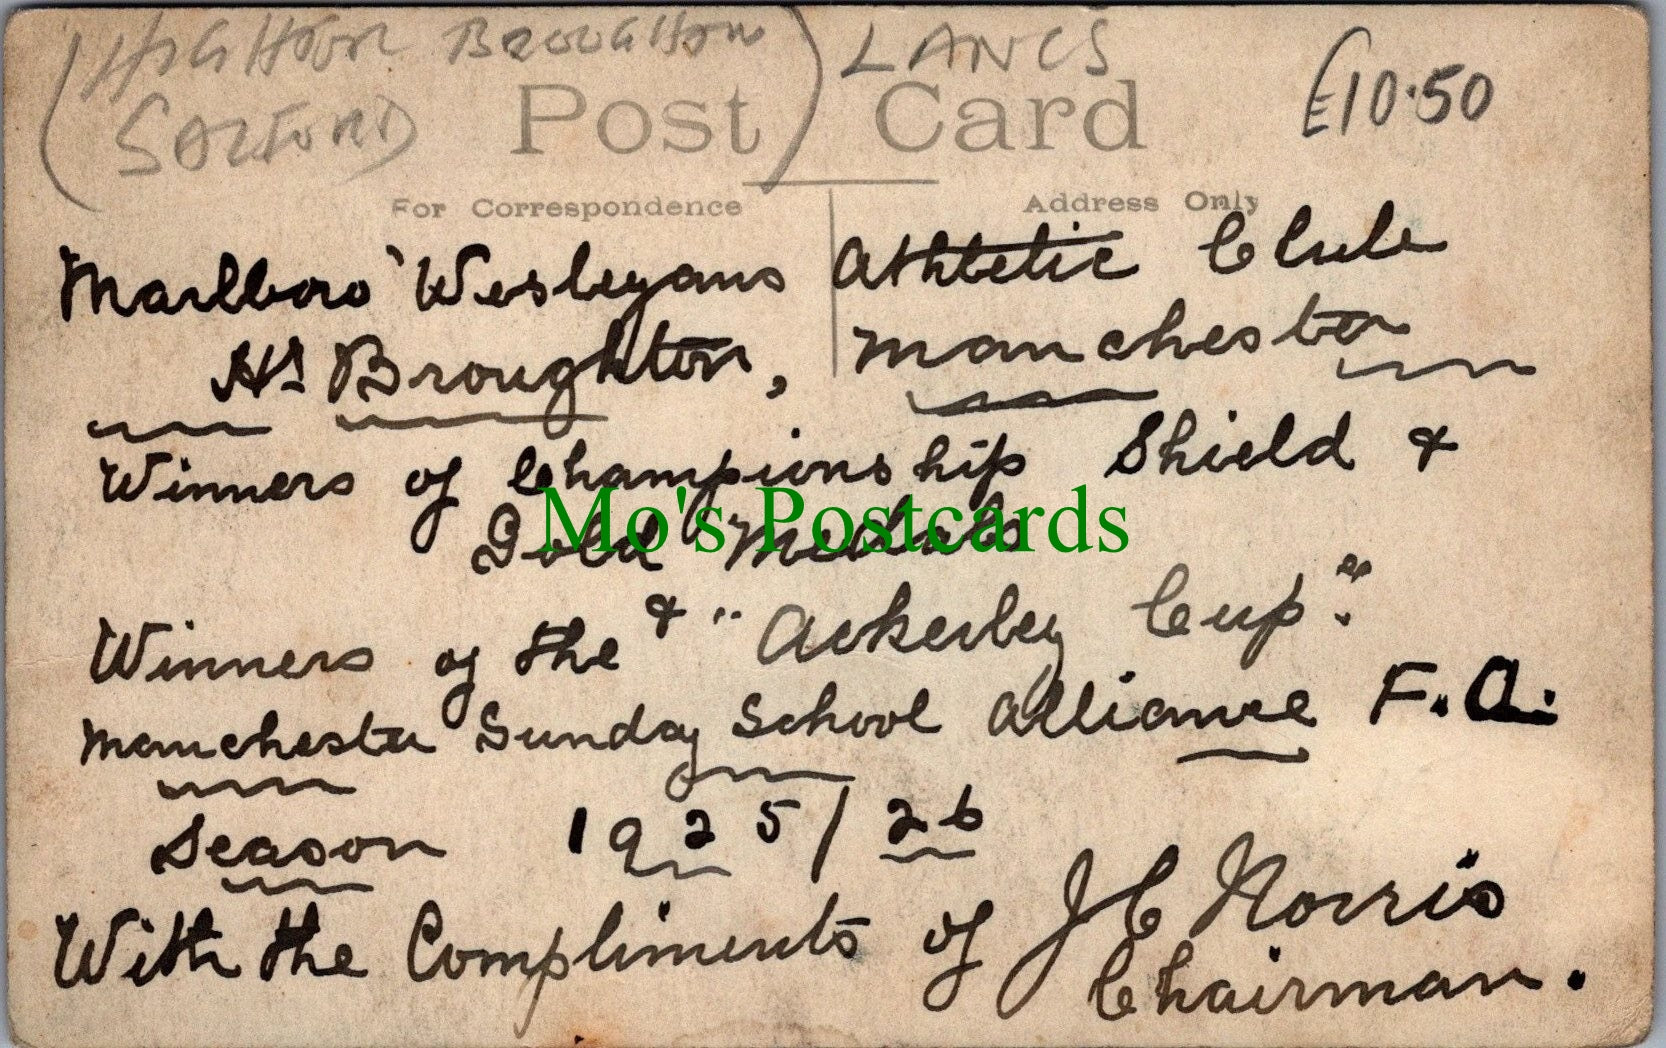 (HIGHTOWN BROUGHTON) LANCS
SALFORD
£10.50
Post Card
For Correspondence Address Only
Marlboro' Wesleyans Athletic Club
Hr Broughton, Manchester
Winners of Championship Shield &
Gold Medals
Mo's Postcards
Winners of the & "Ackerley Cup"
Manchester Sunday School Alliance F.A.
Season 1925/26
With the Compliments of J C Norris
Chairman.